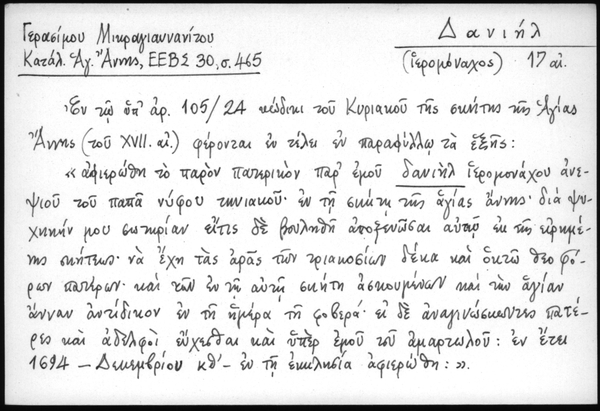 Γερασίμου Μικραγιαννανίτου
Κατάλ. Ἁγ. Ἄννης, ΕΕΒΣ 30, σ. 465
Δανιήλ
(ἱερομόναχος) 17 αἰ.
Ἐν τῷ ὑπ' ἀρ. 105/24 κώδικι τοῦ Κυριακοῦ τῆς σκήτης τῆς Ἁγίας
Ἄννης (τοῦ XVII. αἰ.) φέρονται ἐν τέλει ἐν παραφύλλῳ τὰ ἑξῆς:
«ἀφιερώθη τὸ παρὸν πατερικὸν παρ' ἐμοῦ δανιὴλ ἱερομονάχου ἀνε-
ψιοῦ τοῦ παπᾶ νύφου τηνιακοῦ· ἐν τῇ σκήτῃ τῆς ἁγίας ἄννης· διὰ ψυ-
χικήν μου σωτηρίαν εἴτις δὲ βουληθῇ ἀποξενῶσαι αὐτῷ ἐκ τῆς εἰρημέ-
νης σκήτεως· νὰ ἔχῃ τὰς ἀρὰς τῶν τριακοσίων δέκα καὶ ὀκτὼ θεοφό-
ρων πατέρων· καὶ τῶν ἐν τῇ αὐτῇ σκήτῃ ἀσκουμένων καὶ τὴν ἁγίαν
ἄνναν ἀντίδικον ἐν τῇ ἡμέρᾳ τῇ φοβερᾷ· εἰ δὲ ἀναγινώσκωντες πατέ-
ρες καὶ ἀδελφοὶ εὔχεσθαι καὶ ὑπὲρ ἐμοῦ τοῦ ἁμαρτωλοῦ: ἐν ἔτει
1694 – Δεκεμβρίου κθ' – ἐν τῇ ἐκκλησίᾳ ἀφιερώθη: ».